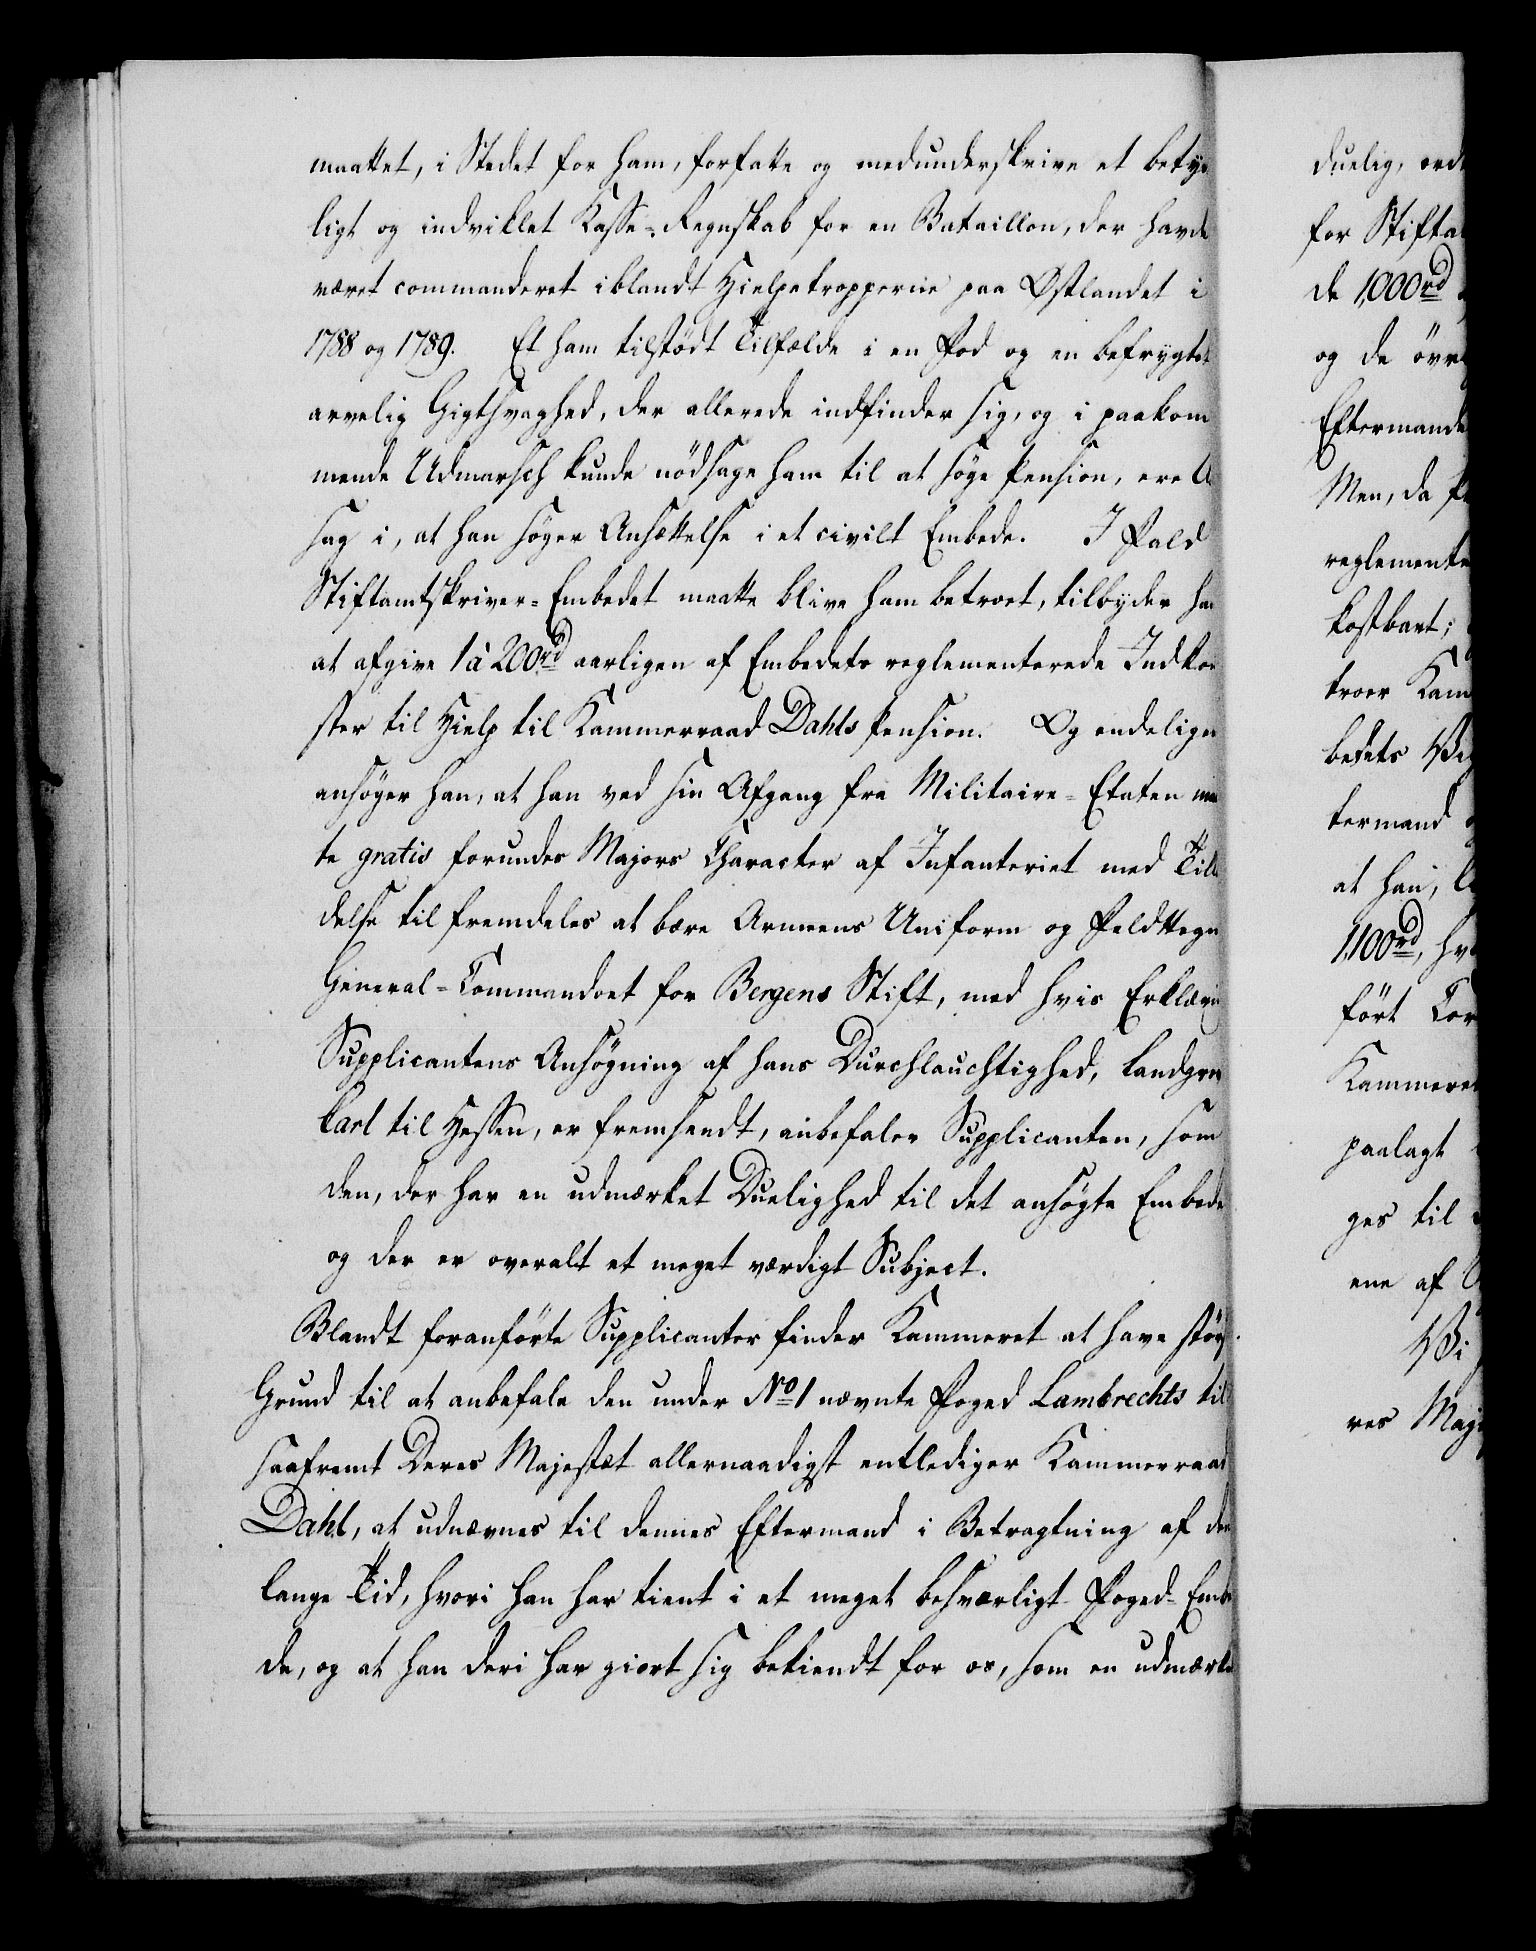 maattet, i Stedet for ham, forfatte og medunderskrive et betyd
ligt og indviklet Kasse-Regnskab for en Bataillon, der havde
været commanderet iblandt Hielpetropperne paa Østlandet i
1788 og 1789. Et ham tilstødt Tilfælde i en Fod og en befrygtet
arvelig Gigtsvaghed, der allerede indfinder sig, og i paakom
mende Udmarsch kunde nödsage ham til at söge Pension, ere A
sag i, at han söger Ansættelse i et civilt Embede. I Fald
Stiftamtskriver-Embedet maatte blive ham betroet, tilbyder ha
at afgive 1 à 200rd aarligen af Embedets reglementerede Indkom
ster til Hielp til Kammerraad Dahls Pension. Og endeligen
ansöger han, at han ved sin Afgang fra Militaire-Etaten maa
te gratis forundes Majors Character af Infanteriet med Till
delse til fremdeles at bære Armeens Uniform og Feldttegn
General-Commandoet for Bergens Stift, med hvis Erklæring
Supplicantens Ansögning af hans Durchlauchtighed, Landgrev
Carl til Hessen, er fremsendt, anbefaler Supplicanten, som
den, der har en udmærket Duelighed til det ansögte Embede
og der er overalt et meget værdigt Subject.
Blandt foranförte Supplicanter finder Kammeret at have störst
Grund til at anbefale den under No 1 nævnte Foged Lambrechts til
saafremt Deres Majestæt allernaadigst entlediger Kammerraad
Dahl, at udnævnes til dennes Eftermand i Betragtning af den
lange Tid, hvori han har tient i et meget besværligt Foged-Embe
de, og at han deri har giort sig bekiendt for os, som en udmærke
duelig, ord
for Stifta
de 1,000rd
og de övri
Eftermande
Men, da
reglemente
kostbart;
troer Kam
bedets
termand
at han,
1,100rd, hv
fört Cor
Kammeret
paalagt
ges til
ene af
Vi
res Maj